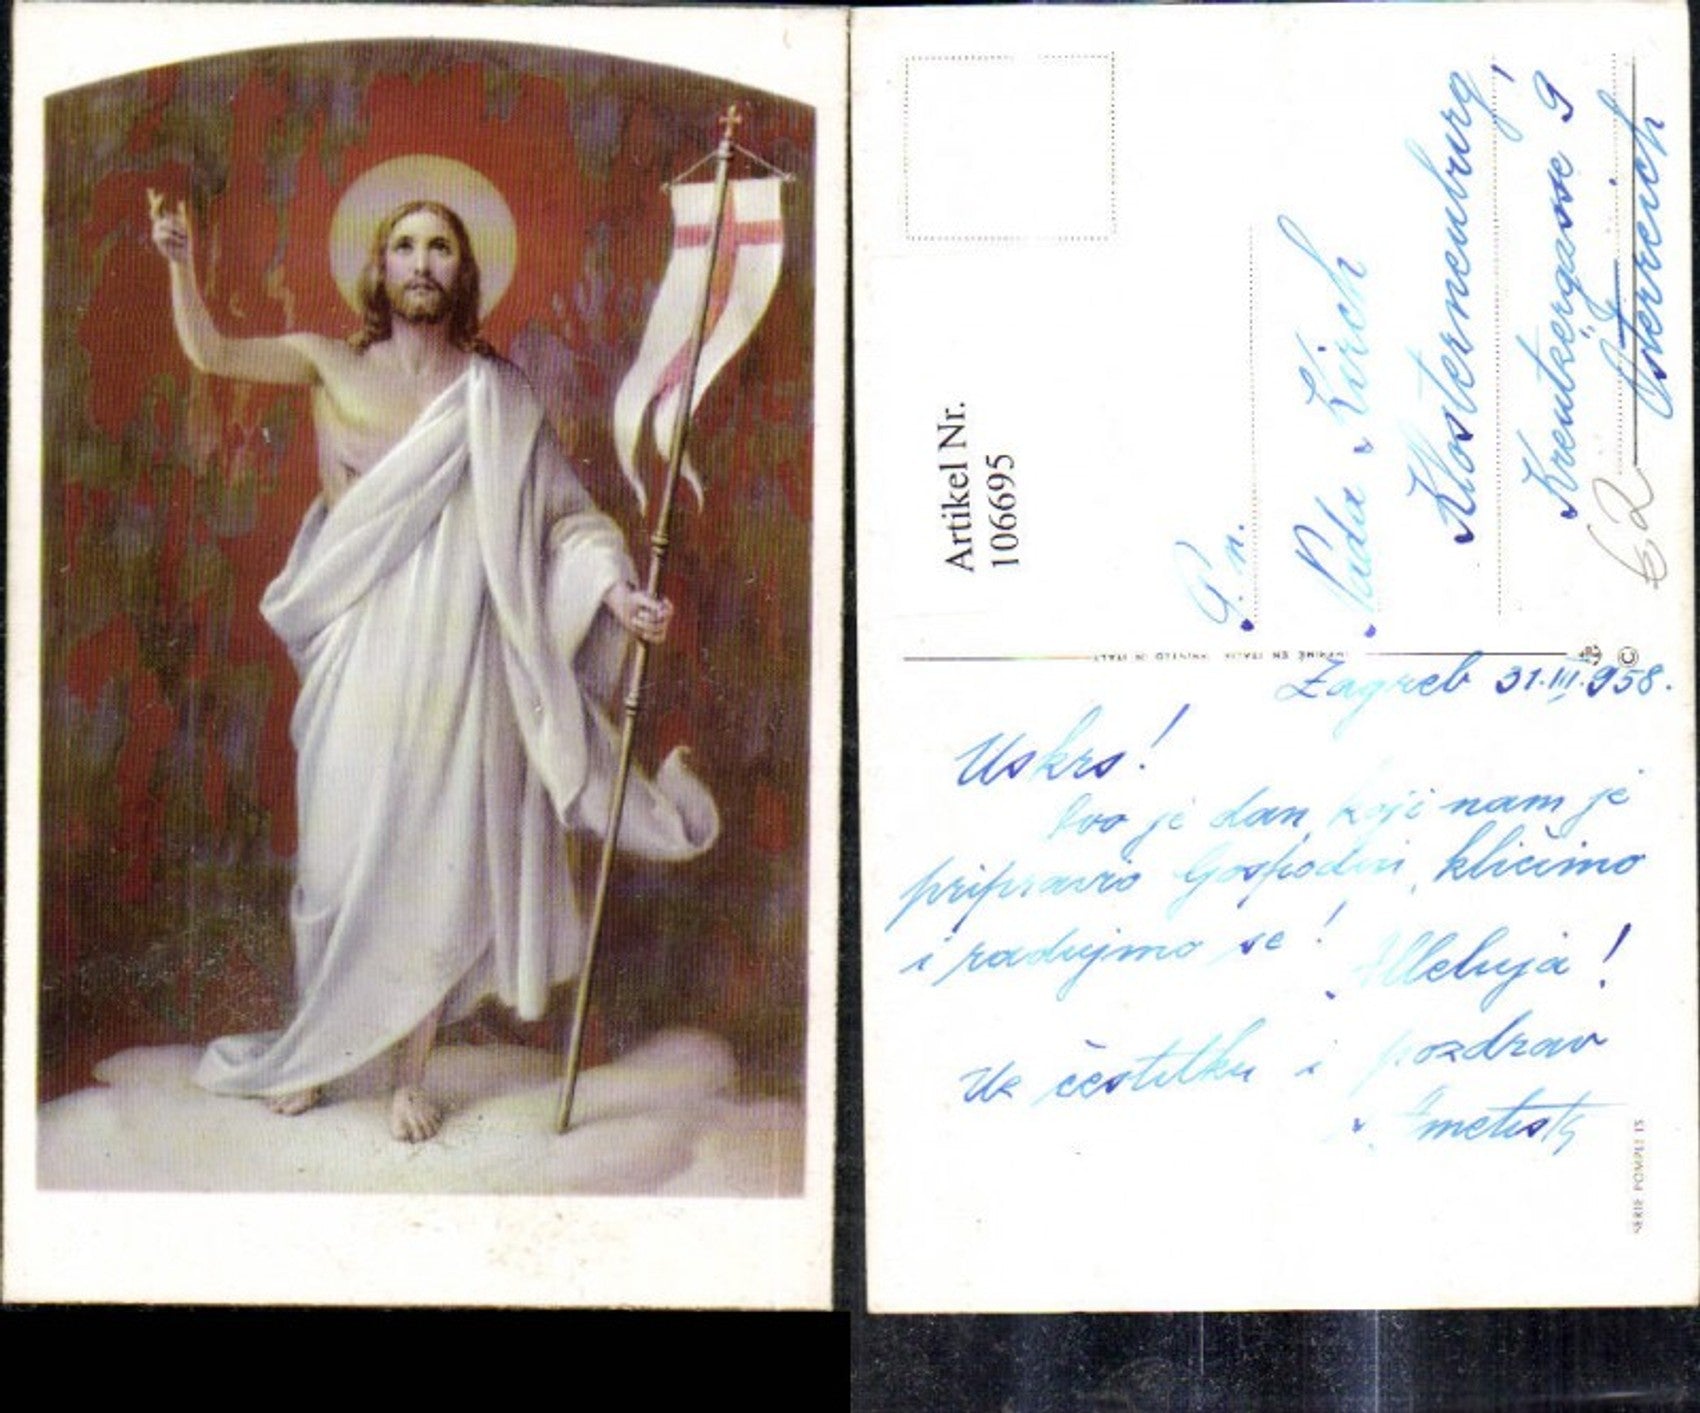 Artikel Nr.
106695
P. n.
Nada Kirch
Klosterneuburg!
Kreutzergasse 9
Österreich
€ 2
IMPRIMÉ EN ITALIE PRINTED IN ITALY
©
Zagreb 31.III.958.
Uskrs!
Ovo je dan koji nam je
pripravio Gospodin, kličimo
i radujmo se!
Alleluja!
Uz čestitku i pozdrav
SERIE POMPEI 15